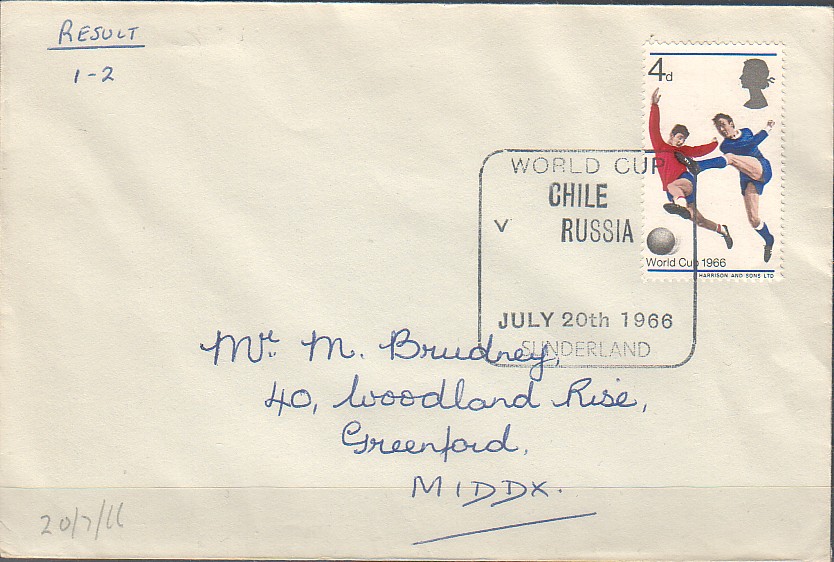 RESULT
1-2
4d
WORLD CUP
CHILE
V RUSSIA
World Cup 1966
HARRISON AND SONS LTD
JULY 20th 1966
SUNDERLAND
Mr. M. Brudney,
40, Woodland Rise,
Greenford,
MIDDX.
20/7/66